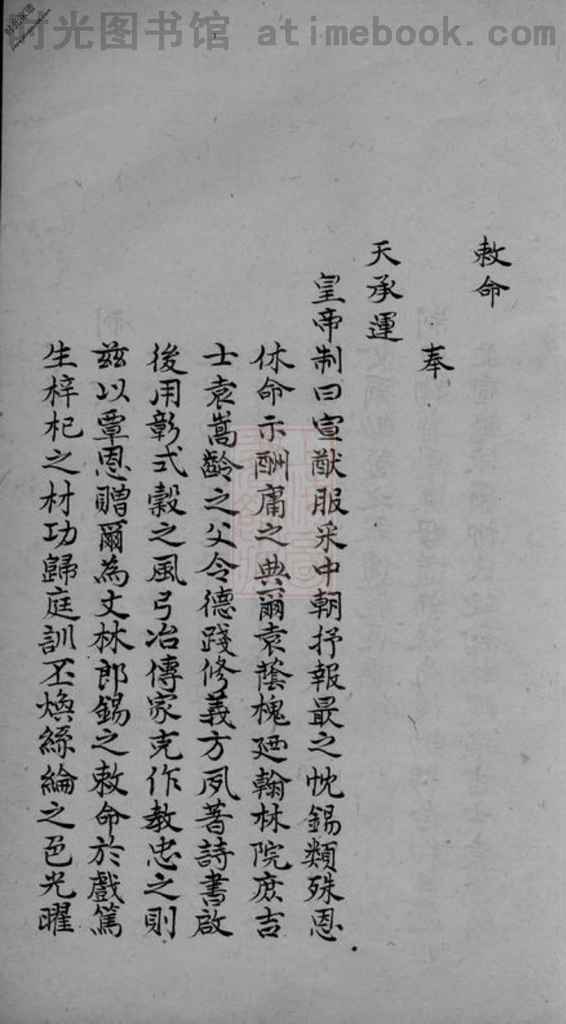 时光图书馆 atimebook.com
敕命
奉
天承運
皇帝制曰宣猷服采中朝抒報最之忱錫類殊恩
休命示酬庸之典爾袁蔭槐廼翰林院庶吉
士袁嵩齡之父令德踐修義方夙著詩書啟
後用彰式穀之風弓冶傳家克作教忠之則
茲以覃恩贈爾為文林郎錫之敕命於戲篤
生梓杞之材功歸庭訓丕煥絲綸之色光曜